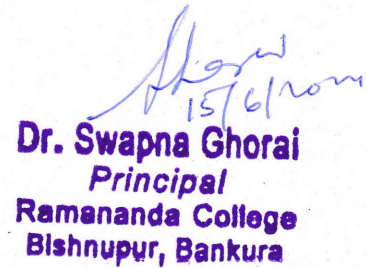 15/6/
Dr. Swapna Ghorai
Principal
Ramananda College
Bishnupur, Bankura